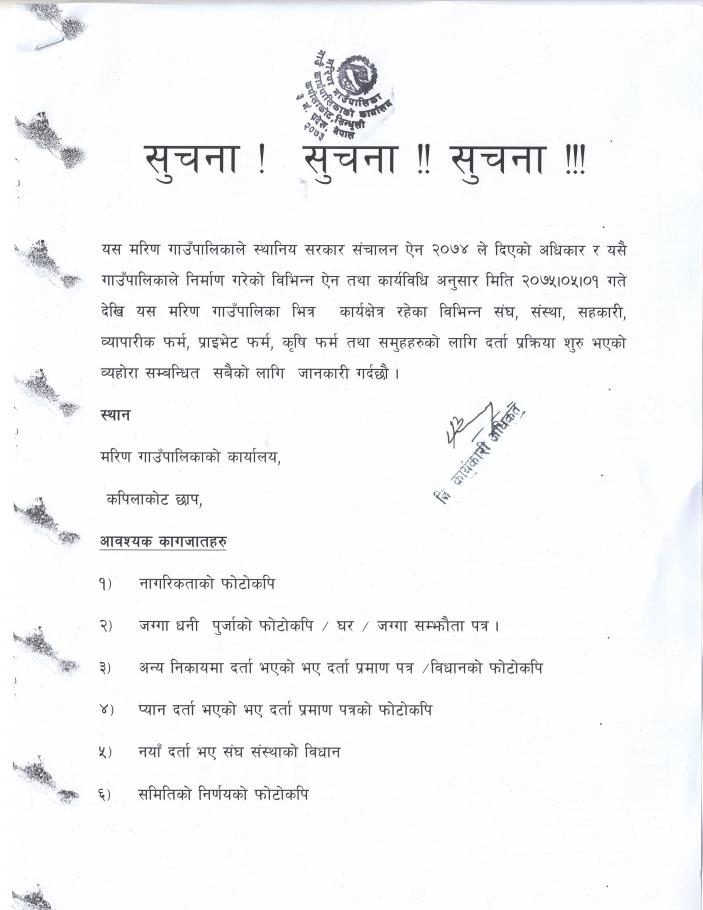 मरिण गाउँपालिका
गाउँ कार्यपालिकाको कार्यालय
कपिलाकोट, सिन्धुली
३ नं. प्रदेश, नेपाल
२०७३
सुचना ! सुचना !! सुचना !!!
यस मरिण गाउँपालिकाले स्थानिय सरकार संचालन ऐन २०७४ ले दिएको अधिकार र यसै
गाउँपालिकाले निर्माण गरेको विभिन्न ऐन तथा कार्यविधि अनुसार मिति २०७५।०५।०१ गते
देखि यस मरिण गाउँपालिका भित्र कार्यक्षेत्र रहेका विभिन्न संघ, संस्था, सहकारी,
व्यापारीक फर्म, प्राइभेट फर्म, कृषि फर्म तथा समुहहरुको लागि दर्ता प्रक्रिया शुरु भएको
व्यहोरा सम्बन्धित सबैको लागि जानकारी गर्दछौ ।
स्थान
मरिण गाउँपालिकाको कार्यालय,
कपिलाकोट छाप,
नि कार्यकारी अधिकृत
आवश्यक कागजातहरु
१) नागरिकताको फोटोकपि
२) जग्गा धनी पुर्जाको फोटोकपि / घर / जग्गा सम्झौता पत्र ।
३) अन्य निकायमा दर्ता भएको भए दर्ता प्रमाण पत्र /विधानको फोटोकपि
४) प्यान दर्ता भएको भए दर्ता प्रमाण पत्रको फोटोकपि
५) नयाँ दर्ता भए संघ संस्थाको विधान
६) समितिको निर्णयको फोटोकपि